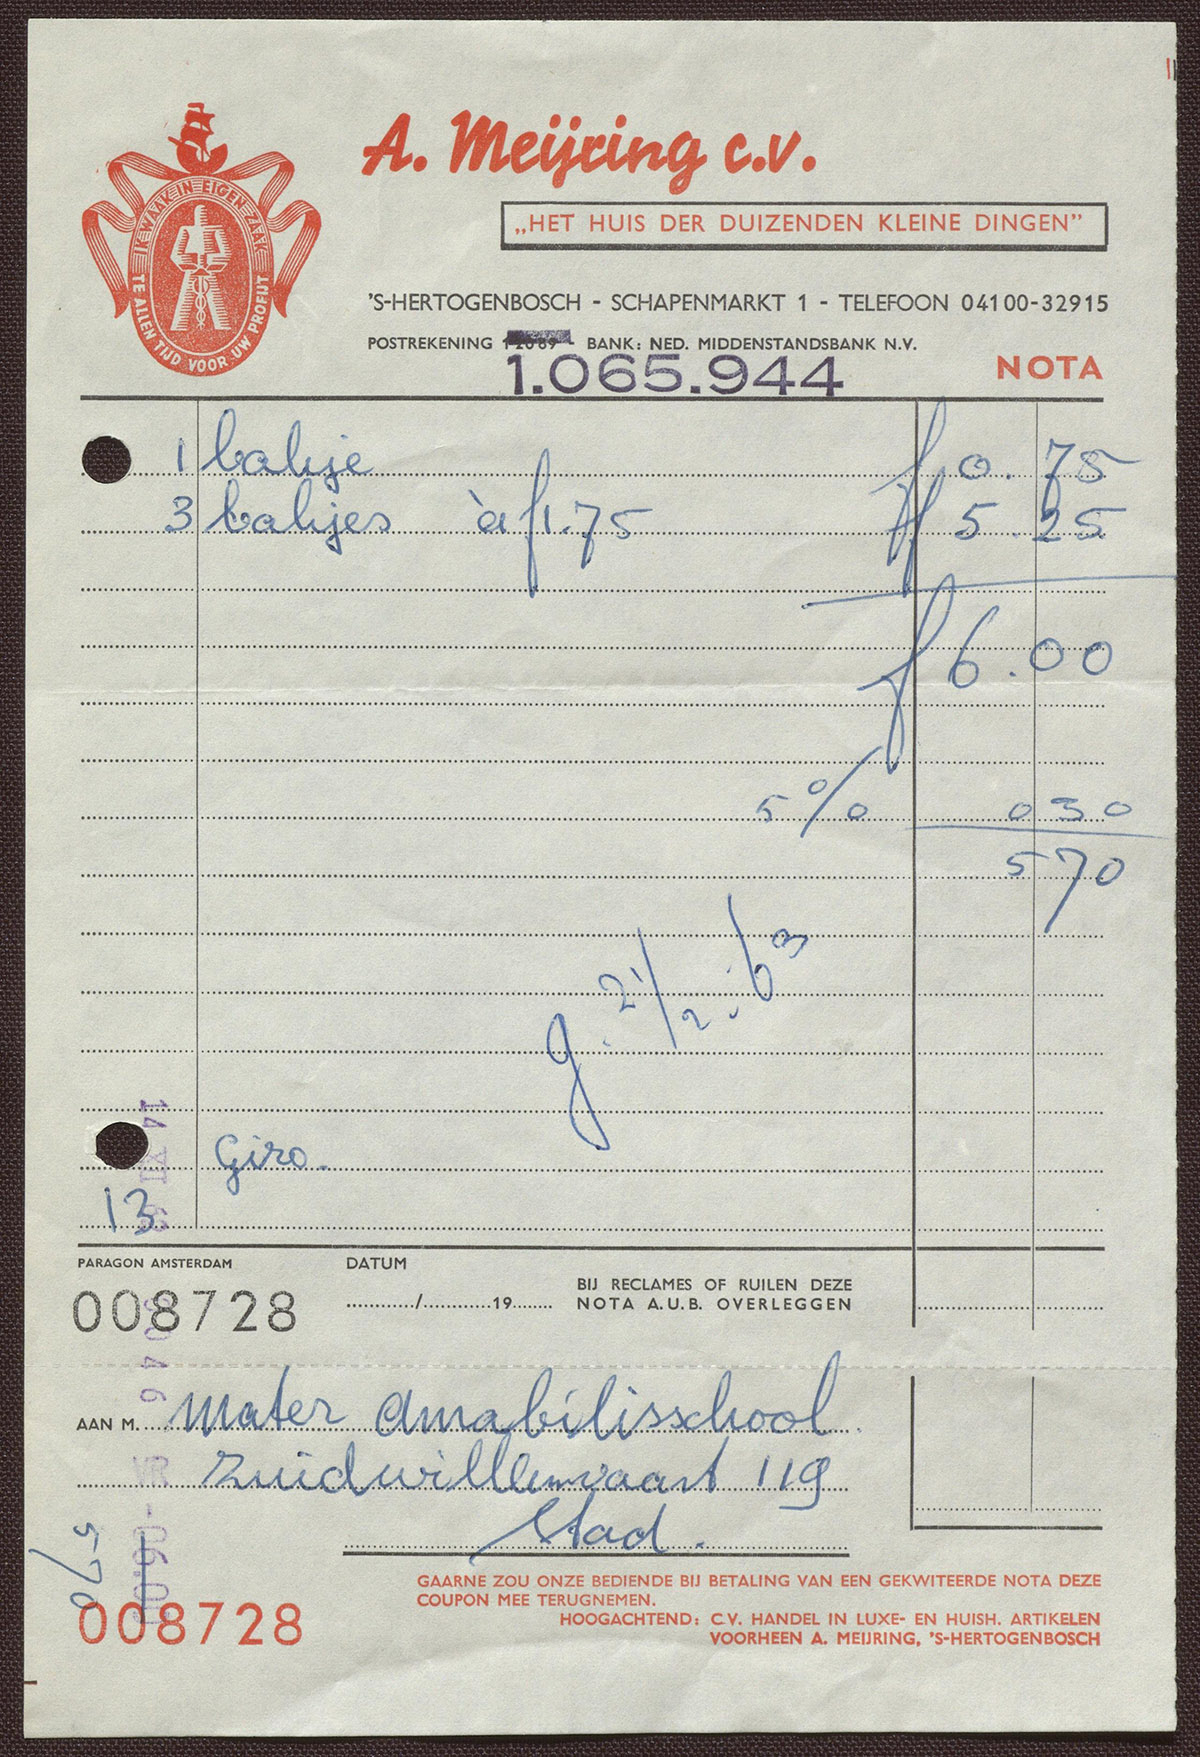 IK WAAK IN EIGEN ZAAK
TE ALLEN TIJD VOOR UW PROFIJT
A. Meijring c.v.
„HET HUIS DER DUIZENDEN KLEINE DINGEN”
'S-HERTOGENBOSCH - SCHAPENMARKT 1 - TELEFOON 04100-32915
POSTREKENING - BANK: NED. MIDDENSTANDSBANK N.V.
1.065.944
NOTA
1 bakje f 0.75
3 bakjes à f1.75 f 5.25
f 6.00
5% 0 30
5 70
g. 21/2.'63
Giro.
13
14 VII 62
PARAGON AMSTERDAM
DATUM
BIJ RECLAMES OF RUILEN DEZE
008728
........../..........19......
NOTA A.U.B. OVERLEGGEN
AAN M. Mater Amabilisschool
Zuidwillemvaart 119
Stad.
5 70
GAARNE ZOU ONZE BEDIENDE BIJ BETALING VAN EEN GEKWITEERDE NOTA DEZE
COUPON MEE TERUGNEMEN.
008728
HOOGACHTEND: C.V. HANDEL IN LUXE- EN HUISH. ARTIKELEN
VOORHEEN A. MEIJRING, 'S-HERTOGENBOSCH